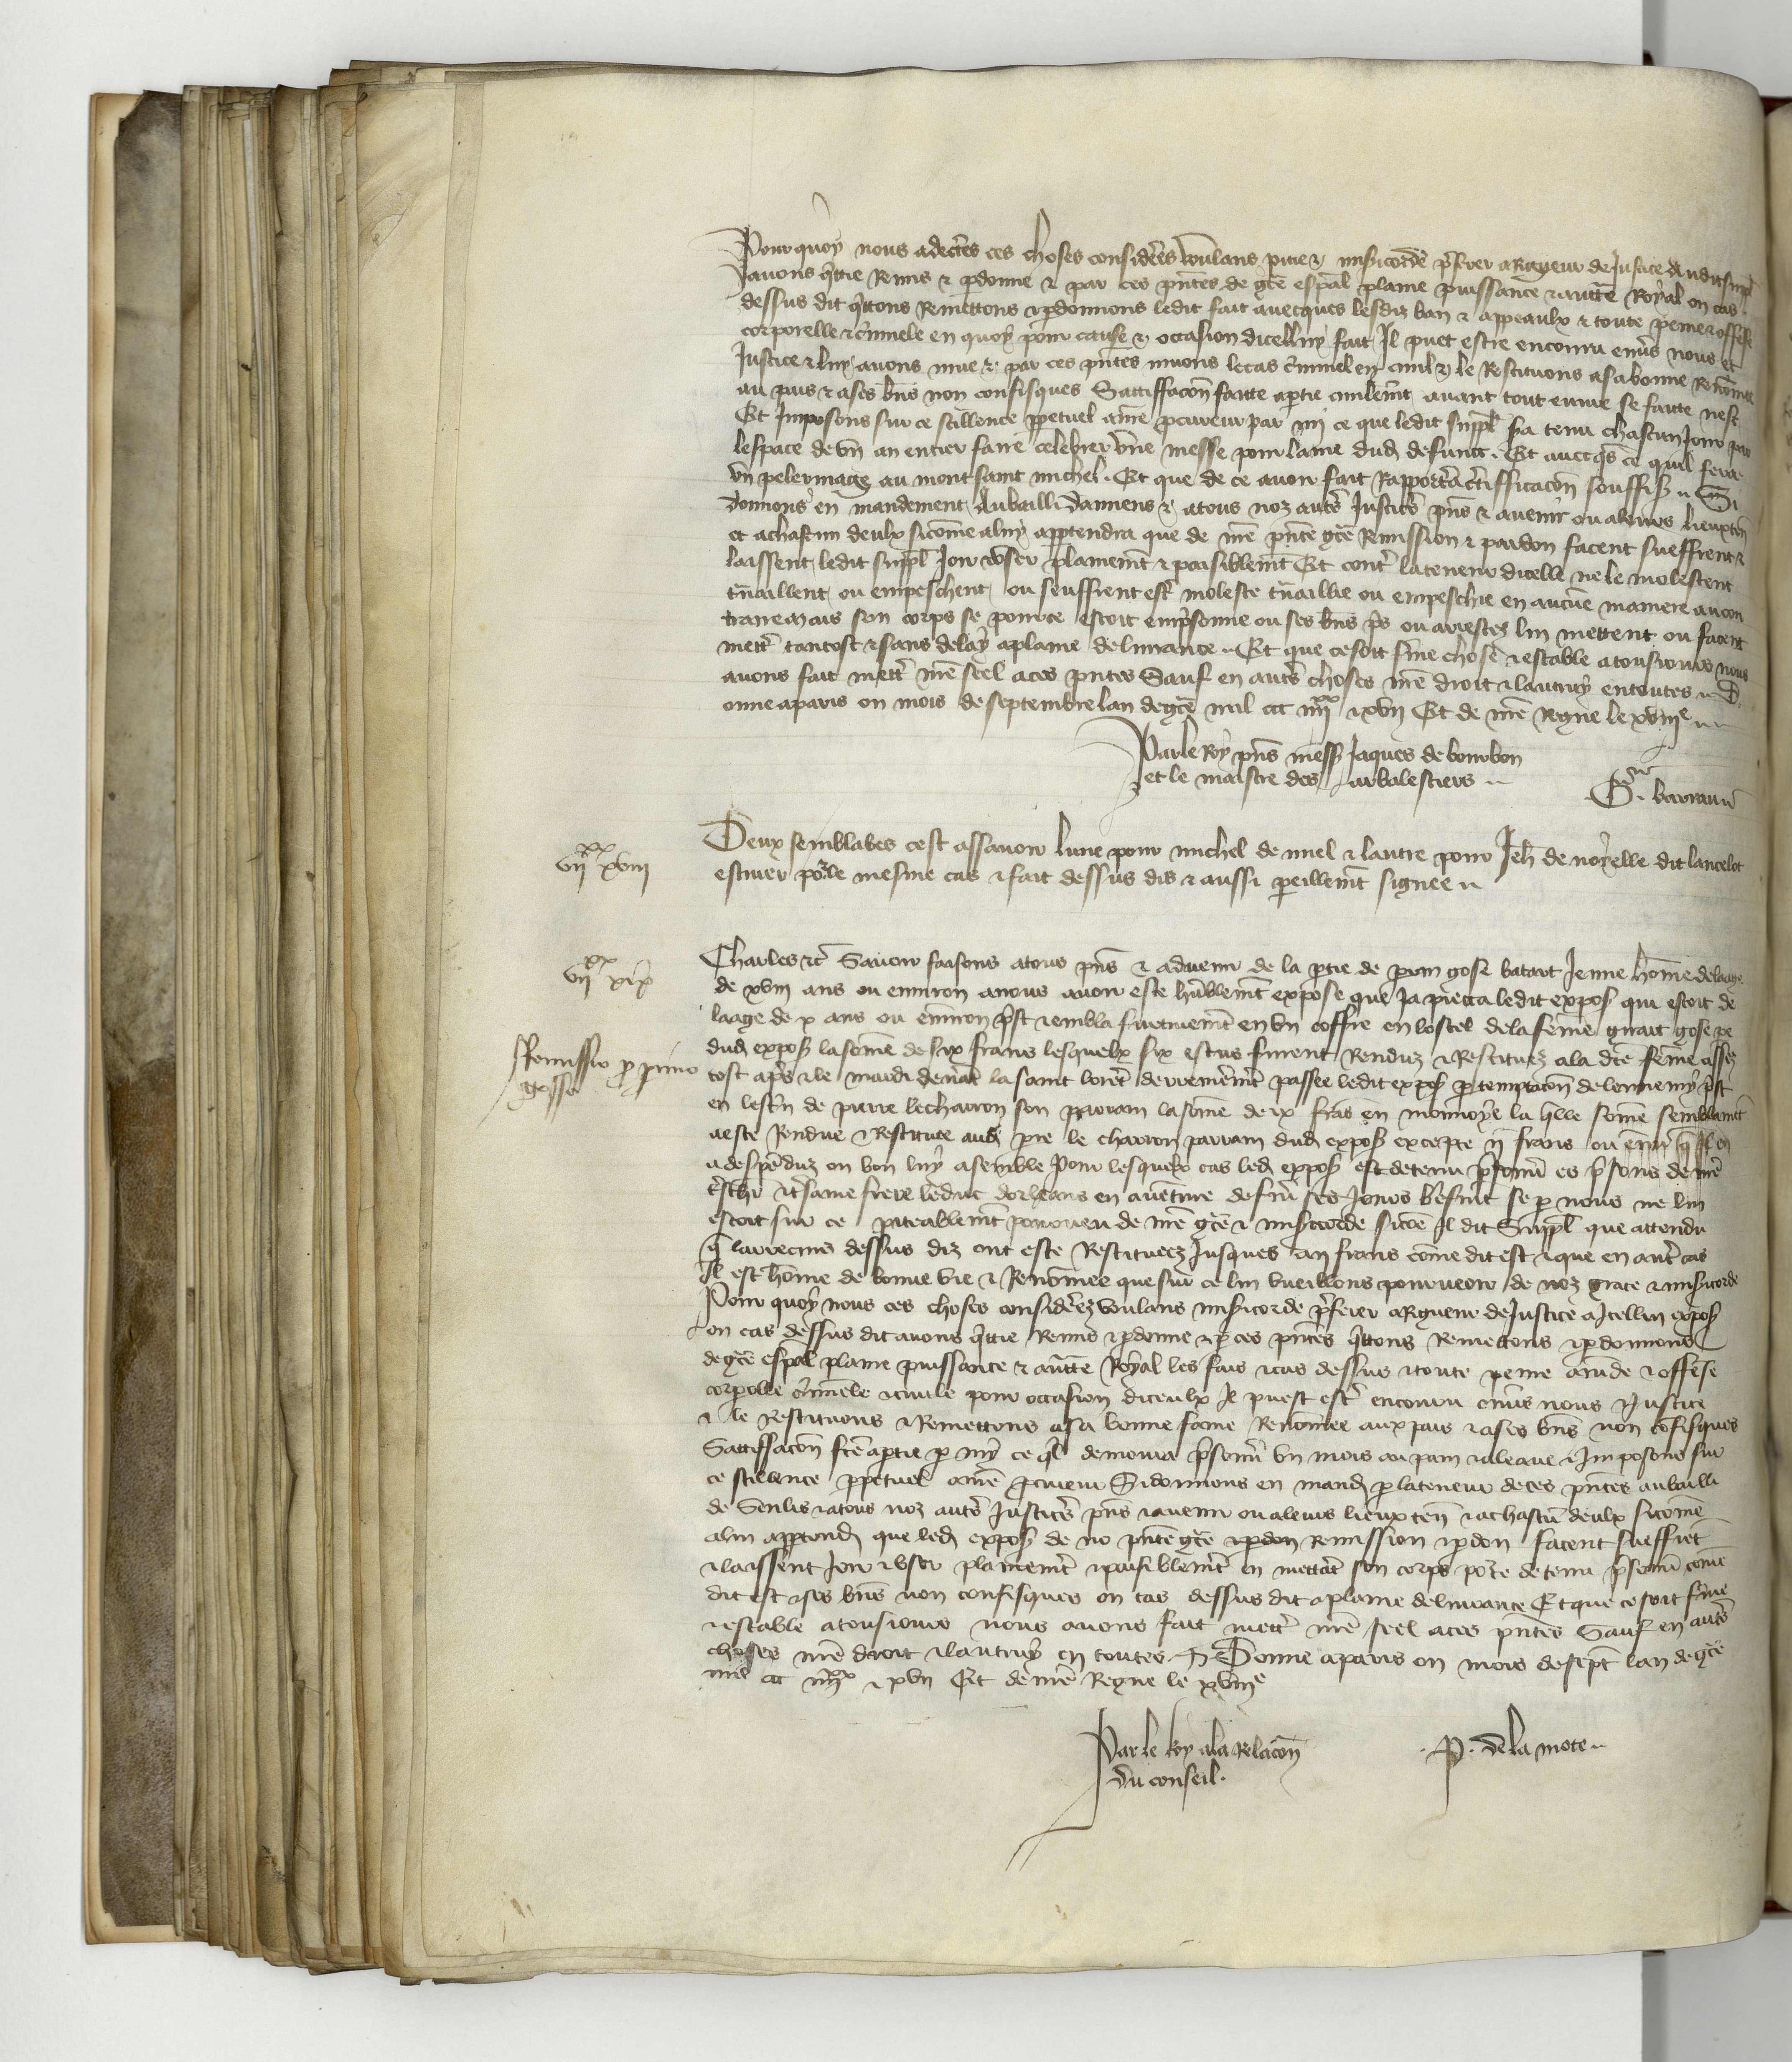 Pour quoy nous adecertes ces choses considerees voulans pitie et misericorde preferer a Rigueur de Justice Audit suppl
avons quittie Remis & pardonne & par ces pntes de gce espal plaine puissance & auctte Royal ou cas
dessus dit quittons Remettons & pardonnons ledit fait avecques lesdiz ban & appeaulx & toute peine & offense
corporelle & criminele en quoy pour cause & occasion dicelluy fait Il puet estre encouru envers nous et
Justice & luy avons mue & par ces pntes muons le cas criminel en civil & le Restituons a sa bonne Renommee
au pais & a ses biens non confisques Satiffacion faicte a partie civilement avant tout euvre se faicte nest
Et Imposons sur ce scillence perpetuel a nre procureur par mi ce que ledit suppl sera tenu chascun Jour par
lespace de un an entier faire celebrer une messe pour lame dud defunct. Et avecqs ce quil fera
un pelerinage au mont saint michel. Et que de ce avoir fait Rapportera certifficacion souffis Si
donnons en mandement Au bailli damiens & a tous noz autres Justiciers pns & avenir ou a leurs lieuxten
et a chascun deulx si comme a luy appartendra que de nre pnte gce Remission & pardon facent sueffrent &
laissent ledit suppl Joir & user plainement & paisiblement Et contre la teneur dicelle ne le molestent
travaillent ou empeschent ou seuffrent estre moleste travaillie ou empeschie en aucune maniere au con
traire mais son corps se pour ce estoit emprisonne ou ses biens pris ou arrestez lui mettent ou facent
mettre tantost & sans delay a plaine delivrance Et que ce soit ferme chose & estable a tousiours nous
avons fait mettre nre seel a ces pntes Sauf en autres choses nre droit & lautruy en toutes D
onne a paris ou mois de septembre lan de gce mil ccc iiii xx & xvii Et de nre Regne le xviiie
Par le Roy pns mess Jaques de bourbon
et le maistre des arbalestiers
G. barrau
vii xx xviii
Deux semblables cest assavoir lune pour michel de miel & lautre pour Jeh de norelle dit lancelot
escuier pour le mesme cas & fait dessus dis & aussi pareillement signee
vii xx xix
Charles etc Savoir faisons a tous pns & advenir de la partie de perrin gosse batart Jeune homme de laage
de xviii ans ou environ a nous avoir este humblement expose que Ja pieca ledit expos qui estoit de
laage de x ans ou environ prist & embla furtivement en un coffre en lostel de la femme gosse
dud expos la somme de six frans lesquelx six escus furent Renduz & Restituez a la dce femme assez
Remissio pro perrino
gosse
tost apres & le mardi devant la saint lorent derrenierement passee ledit expos par temptacion de lennemy prist
en lescrin de pierre le charron son parrain la somme de ix frans en monnoye la quelle somme semblament
a este Rendue & Restitute aud pre le charron parrain dud expos excepte ii frans ou environ quil en
a despenduz ou bon luy a semble Pour lesquelx cas led expos est detenu prisonnier es prisons de nre
treschr & tresame frere le duc dorleans en aventure de finer ses Jours briefment se par nous ne lui
estoit sur ce piteablement pourveu de nre gce & misericorde si come Il dit Suppl que attendu
que larrecins dessus diz ont este Restituees Jusques a ii frans comme dit est & que en autres cas
Il est homme de bonne vie & Renommee que sur ce lui vueillons pourveoir de noz grace & misericorde
Pour quoy nous ces choses considerees voulans misericorde preferer a Rigueur de Justice a Icellui expos
ou cas dessus dit avons quittie Remis & pardonne & par ces pntes quittons Remettons & pardonnons
de gce espal plaine puissance & auctte Royal les fais & cas dessus & toute peine amende & offense
corporelle criminele & civile pour occasion diceulx Il puest estre encouru envers nous & Justice
& le Restituons & Remettons a sa bonne fame Renommee aux pais & a ses biens non confisques
Satiffacion fce a partie par my ce quil demourra prisonnier un mois au pain & a leaue & Imposons sur
ce scillence perpetuel a nre procureur Si donnons en mand par la teneur de ces pntes au bailli
de Senlis & a tous noz autres Justiciers pns & avenir ou a leurs lieux ten & a chascun deulx si comme
a lui appartendra que led expos de no pnte gce & pardon remission & pardon facent sueffrent
& laissent Joir & user plainement & paisiblement en mettant son corps pour ce detenu prisonnier comme
dit est & ses biens non confisques ou cas dessus dit a plaine delivrance Et que ce soit ferme
& estable a tousiours nous avons fait mettre nre seel a ces pntes Sauf en autres
choses nre droit & lautruy en toutes Donne a paris ou mois de sept lan de gce
mil ccc iiii xx & xvii Et de nre Regne le xviiie
Par le Roy a la Relacion
du conseil.
P. de la mote